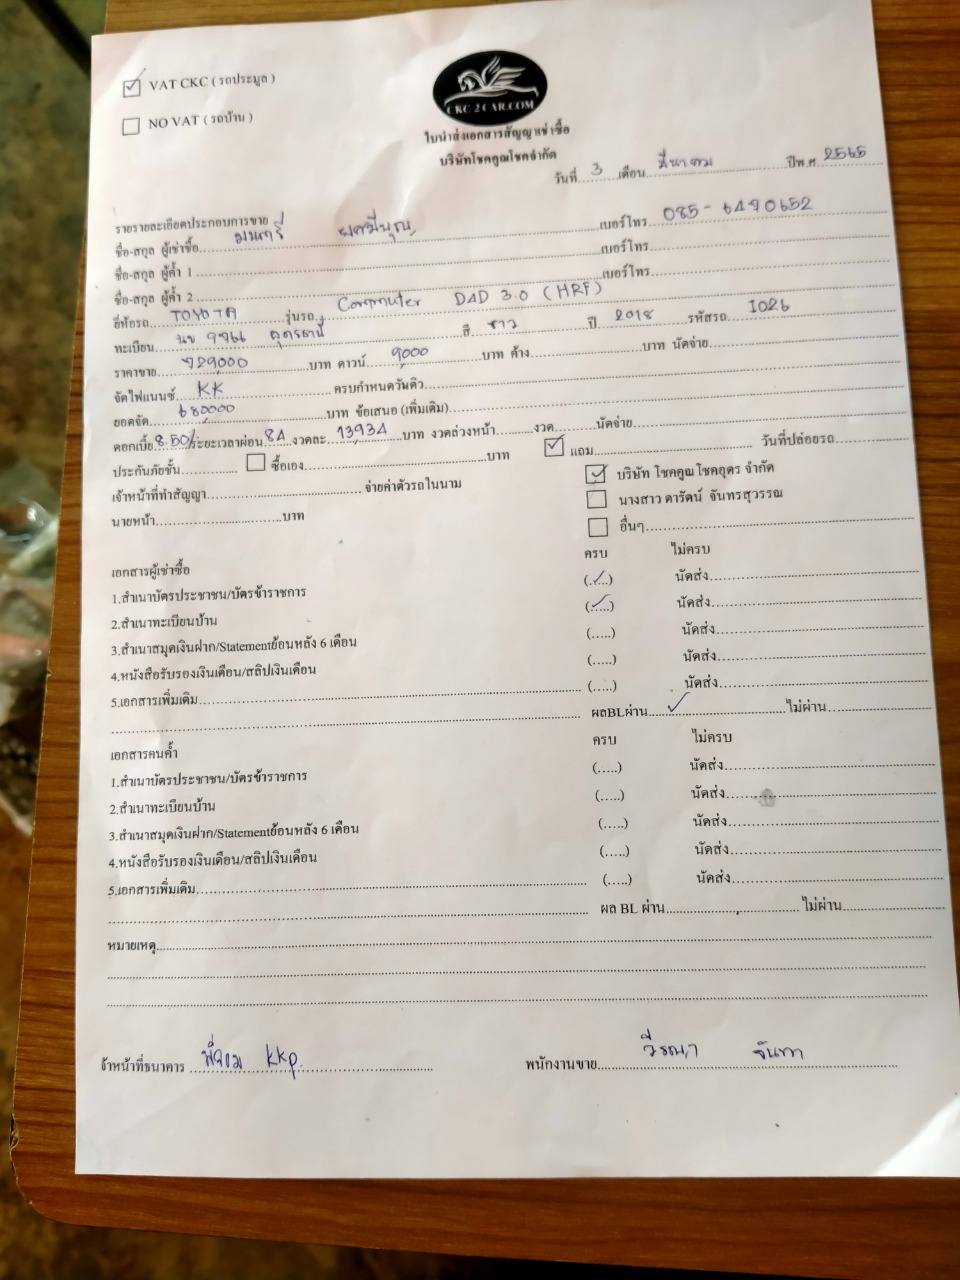 VAT CKC ( รถประมูล )
NO VAT ( รถบ้าน )
CKC 2 CAR.COM
ใบนำส่งเอกสารสัญญาเช่าซื้อ
บริษัทโชคคูณโชคจำกัด
วันที่ 3 เดือน มีนาคม ปีพ.ศ. 2565
รายรายละเอียดประกอบการขาย
ชื่อ-สกุล ผู้เช่าซื้อ มนตรี เบอร์โทร. 085-6490652
ชื่อ-สกุล ผู้ค้ำ 1 เบอร์โทร
ชื่อ-สกุล ผู้ค้ำ 2 เบอร์โทร
ยี่ห้อรถ TOYOTA รุ่นรถ Commuter D4D 3.0 (HRF)
ทะเบียน อุดรธานี สี ขาว ปี 2018 รหัสรถ I026
ราคาขาย 729,000 บาท ดาวน์ 9,000 บาท ค้าง บาท นัดจ่าย
จัดไฟแนนซ์ KK ครบกำหนดวันคิว
ยอดจัด 680,000 บาท ข้อเสนอ (เพิ่มเติม)
ดอกเบี้ย 8.50/ ระยะเวลาผ่อน 84 งวดละ 13,934 บาท งวดล่วงหน้า งวด นัดจ่าย
ประกันภัยชั้น ซื้อเอง บาท แถม วันที่ปล่อยรถ
เจ้าหน้าที่ทำสัญญา จ่ายค่าตัวรถในนาม บริษัท โชคคูณโชคอุดร จำกัด
นายหน้า บาท นางสาว ดารัตน์ จันทรสุวรรณ
อื่นๆ
เอกสารผู้เช่าซื้อ ครบ ไม่ครบ
1.สำเนาบัตรประชาชน/บัตรข้าราชการ (.....) นัดส่ง
2.สำเนาทะเบียนบ้าน (.....) นัดส่ง
3.สำเนาสมุดเงินฝาก/Statementย้อนหลัง 6 เดือน (.....) นัดส่ง
4.หนังสือรับรองเงินเดือน/สลิปเงินเดือน (.....) นัดส่ง
5.เอกสารเพิ่มเติม (.....) นัดส่ง
ผลBLผ่าน ไม่ผ่าน
เอกสารคนค้ำ ครบ ไม่ครบ
1.สำเนาบัตรประชาชน/บัตรข้าราชการ (.....) นัดส่ง
2.สำเนาทะเบียนบ้าน (.....) นัดส่ง
3.สำเนาสมุดเงินฝาก/Statementย้อนหลัง 6 เดือน (.....) นัดส่ง
4.หนังสือรับรองเงินเดือน/สลิปเงินเดือน (.....) นัดส่ง
5.เอกสารเพิ่มเติม (.....) นัดส่ง
ผล BL ผ่าน ไม่ผ่าน
หมายเหตุ
จ้าหน้าที่ธนาคาร KKP. พนักงานขาย จันทา